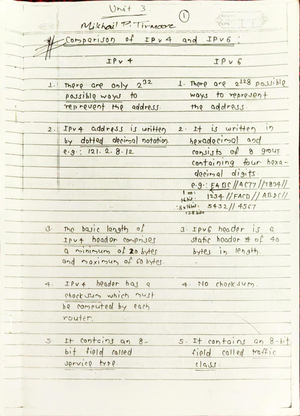 Unit 3
①
Comparison of IPv4 and IPv6 :
IPv4
IPv6
1. There are only 2^32
possible ways to
represent the address
1. There are 2^128 possible
ways to represent
the address
2. IPv4 address is written
by dotted decimal notation
e.g.: 121.2.8.12
2. It is written in
hexadecimal and
consists of 8
containing four hexa-
decimal digits
e.g.:
1234//FACD//
5432//4567
3. The basic length of
IPv4 header comprises
a minimum of 20 bytes
and maximum of 60 bytes.
3. IPv6 header is a
static header of 40
bytes in length
4. IPv4 header has a
checksum which must
be computed by each
router.
4. No checksum.
5. It contains an 8-
bit field called
service type.
5. It contains an 8-bit
field called traffic
class.